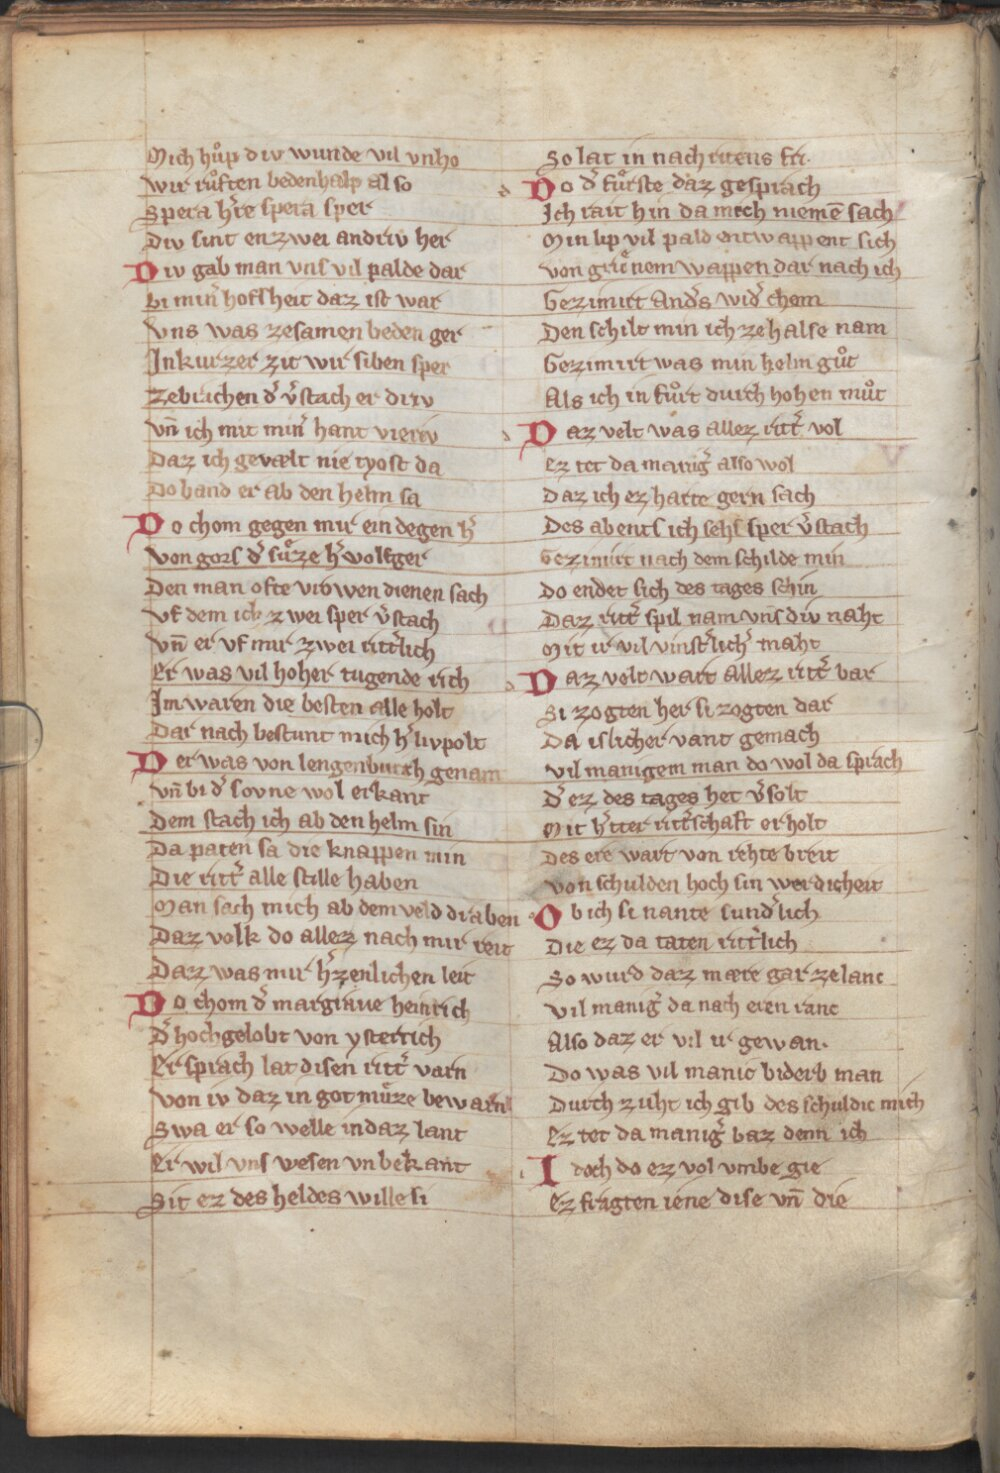 Mich hůp div wunde vil vnho
wir růften bedenhalp also
Spera h̄re spera sper
Div sint enzwei andriv her
Div gab man vns vil palde dar
bi min̄ hofsheit daz ist war
vns was zesamen beden ger
Inkurzer zit wir siben sper
Zebrachen d̄ v̄stach er driv
vn̄ ich mit min̄ hant vieriv
Daz ich gevælt nie tyost da
Do band er ab den helm sa
Do chom gegen mir ein degen h̄
von gors d̄ sůze h̄ wolfger
Den man ofte vrowen dienen sach
vf dem ich zwei sper v̄stach
vn̄ er vf mir zwei ritt̄lich
Er was vil hoher tugende rich
Im waren die besten alle holt
Dar nach bestunt mich h̄ livpolt
Der was von lengenburch genant
vn̄ bi d̄ sovne wol erkant
Dem stach ich ab den helm sin
Da paten sa die knappen min
Die ritt̄ alle stille haben
Man sach mich ab dem veld draben
Daz volk do allez nach mir reit
Daz was mir h̄zenlichen leit
Do chom d̄ margraue heinrich
d̄ hochgelobt von ysterrich
Er sprach lat disen ritt̄ varn
von iv daz in got můze bewarn
Swa er so welle in daz lant
Er wil vns wesen vnbekant
Sit ez des heldes wille si
So lat in nach ritens fri.
Do d̄ fůrste daz gesprach
Ich rait hin da mich niemē sach
Min lip vil pald entwappent sich
von grůnem wappen dar nach ich
Gezimirt and̄s wid̄ chom
Den schilt min ich zehalse nam
Gezimirt was min helm gůt
Als ich in fůrt durch hohen můt
Daz velt was allez ritt̄ vol
Ez tet da maniḡ also wol
Daz ich ez hatte gern sach
Des abents ich sehs sper v̄stach
Gezimirt nach dem schilde min
Do endet sich des tages schin
Daz ritt̄ spil nam vns div naht
Mit ir vil vinst̄lich̄ maht
Daz velt wart allez ritt̄ bar
Si zogten her si zogten dar
Da islicher vant gemach
vil manigem man do wol da sprach
d̄ ez des tages het v̄solt
Mit h̄tter ritt̄schaft erholt
Des ere wart von rehte breit
von schulden hoch sin werdicheit
Ob ich si nante sund̄lich
Die ez da taten ritt̄lich
So wurd daz mære gar zelanc
vil maniḡ da nach eren ranc
Also daz er vil ir gewan.
Do was vil manic biderb man
Durch zuht ich gib des schuldic mich
Ez tet da maniḡ baz denn ich
Idoch do ez vol vmbe gie
Ez fragten iene dise vn̄ die